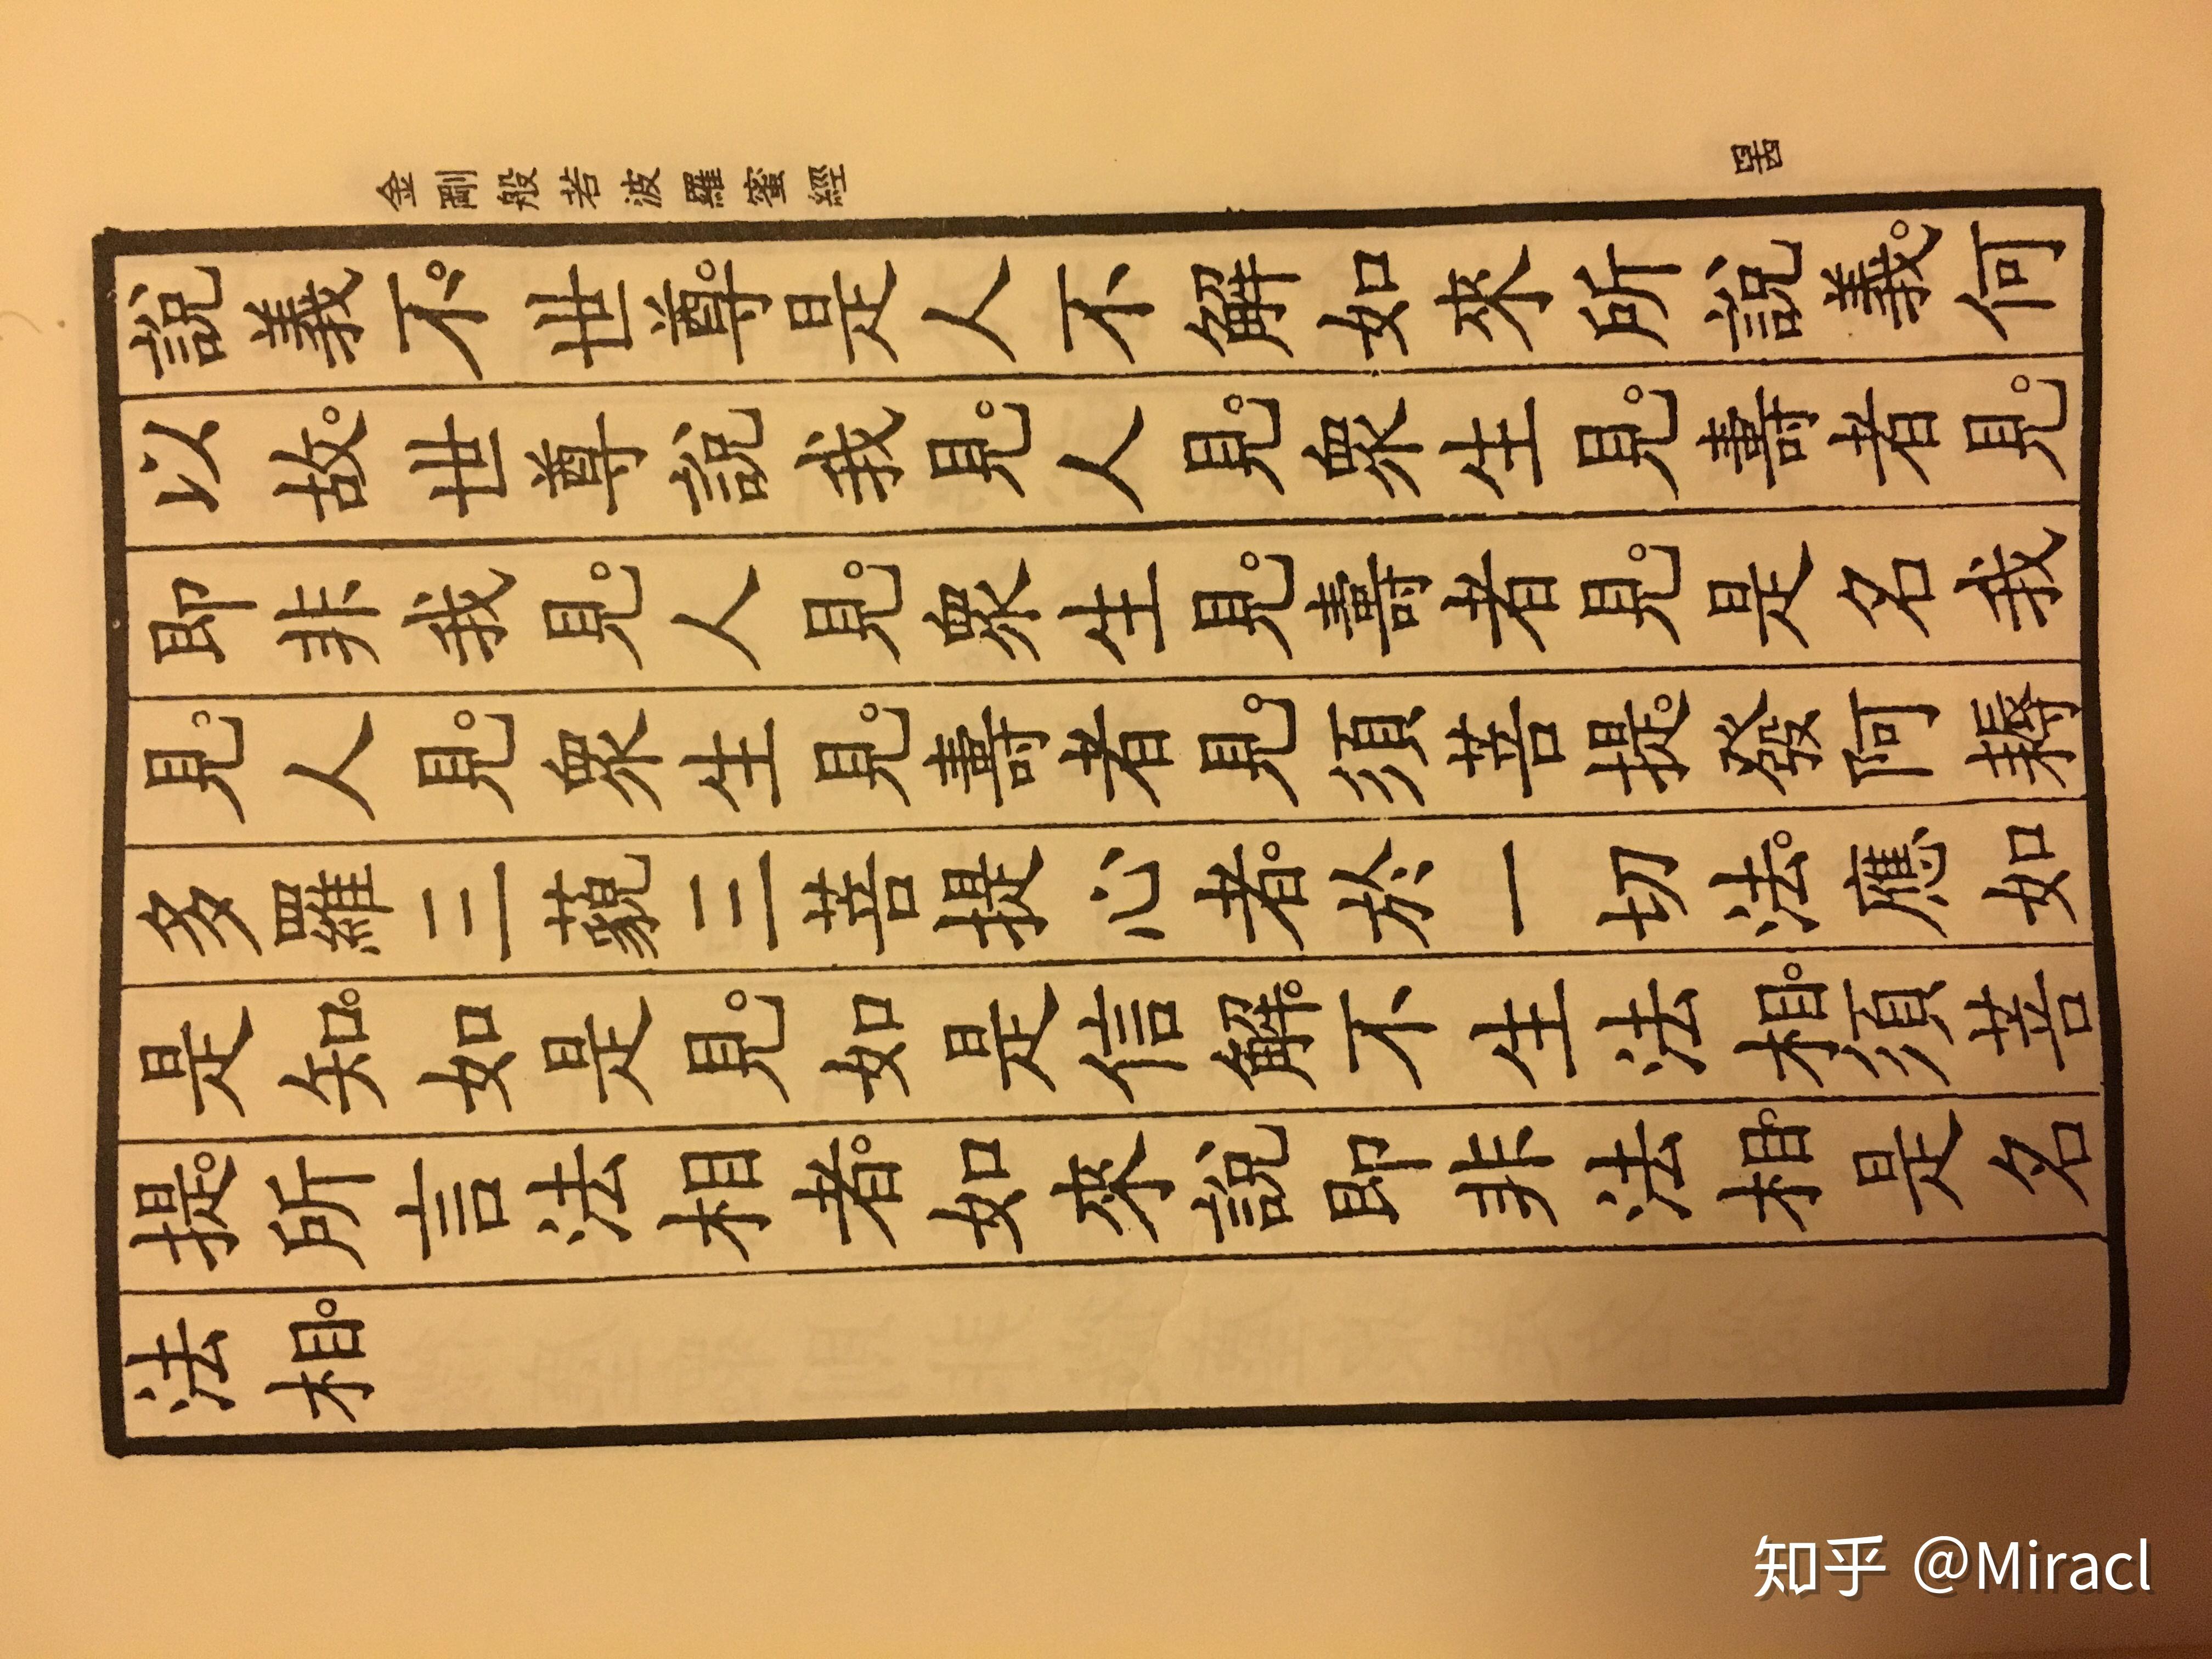 金剛般若波羅蜜經
說義不。世尊。是人不解如來所說義。何
以故。世尊說我見。人見。眾生見。壽者見。
即非我見。人見。眾生見。壽者見。是名我
見。人見。眾生見。壽者見。須菩提。發阿耨
多羅三藐三菩提心者。於一切法。應如
是知。如是見。如是信解。不生法相。須菩
提。所言法相者。如來說即非法相。是名
法相。
知乎 @Miracl